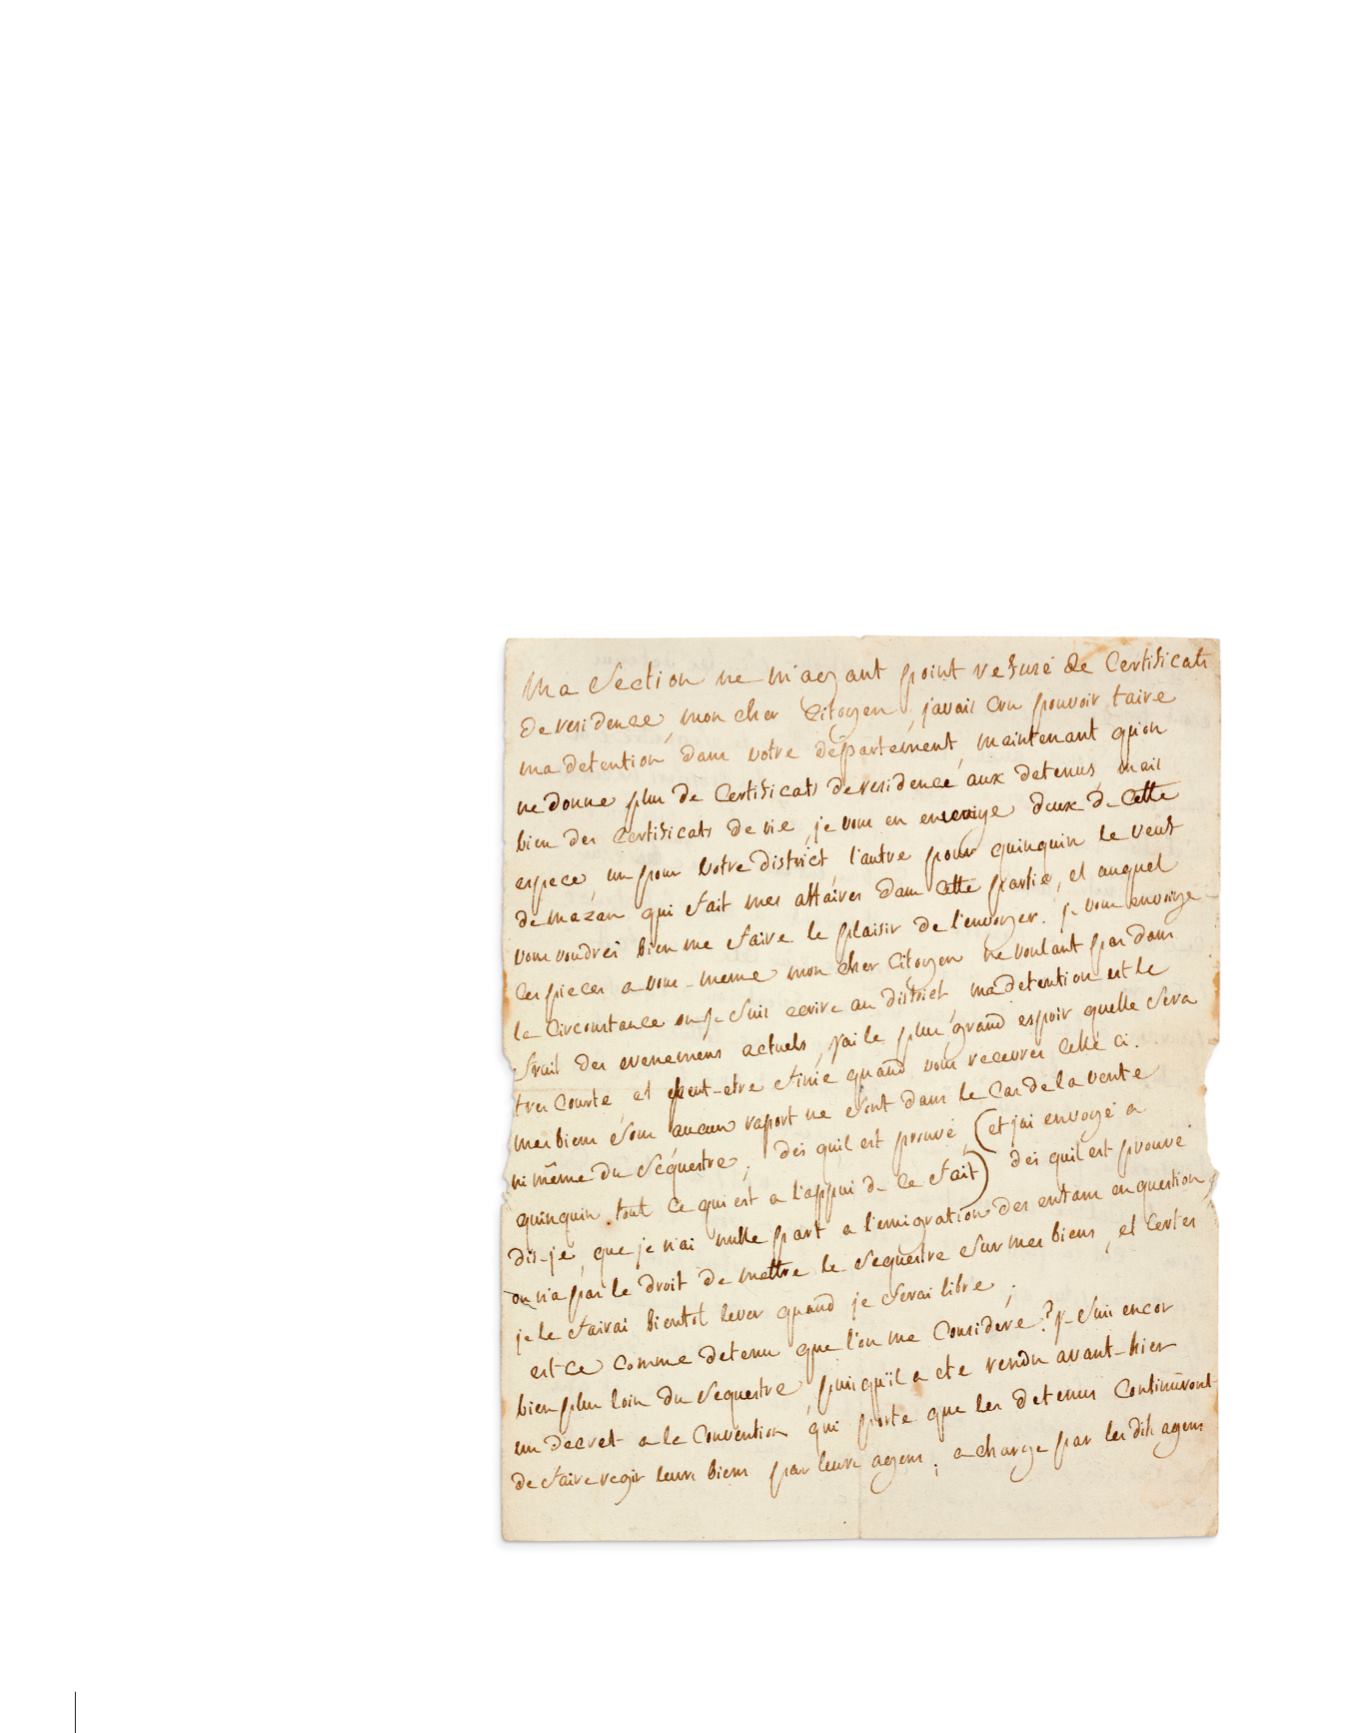 Ma Section ne m'ayant point refusé de Certificats
de residence, mon cher Citoyen, j'avais cru pouvoir taire
ma detention dans votre département, maintenant qu'on
ne donne plus de Certificats de residence aux detenus, mais
bien des Certificats de vie, je vous en envoye deux de cette
espece, un pour votre district, l'autre pour quinquin le veuf
de mazan qui fait mes affaires dans cette partie, et auquel
vous voudrés bien me faire le plaisir de l'envoyer. je vous envoye
ces pieces a vous-meme mon cher Citoyen ne voulant pas dans
la Circonstance ou je suis ecrire au district, ma detention est le
fruit des evenemens actuels, j'ai le plus grand espoir quelle sera
tres Courte, et peut-etre finie quand vous recevres celle ci.
mes biens sous aucun raport ne sont dans le Cas de la vente
ni même du Séquestre; des quil est prouvé (et j'ai envoyé a
quinquin tout ce qui est a l'appui de ce fait) des quil est prouvé
dis-je, que je n'ai nulle part a l'emigration des enfans en question,
on n'a pas le droit de mettre le Sequestre sur mes biens, et certes
je le fairai bientot lever quand je serai libre;
est ce comme detenu que l'on me Considere? je suis encor
bien plus loin du sequestre puisqu'il a ete rendu avant-hier
un decret a la Convention qui porte que les detenus Continuront
de faire regir leurs biens par leurs agens; a charge par les dits agens